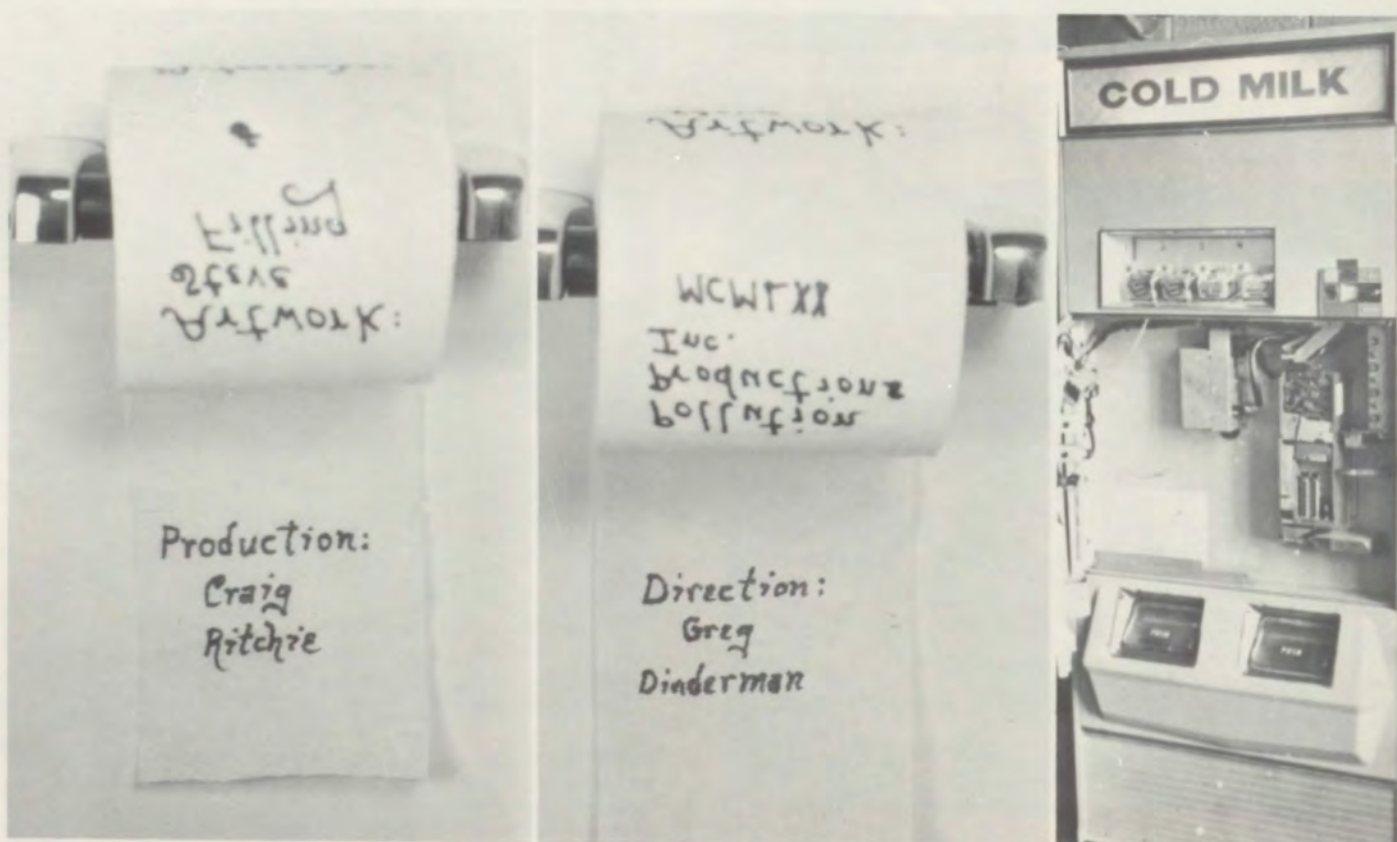 Artwork:
Steve
Filling
Production:
Craig
Ritchie
Artwork:
Pollution
Productions
Inc.
MCMLXX
Direction:
Greg
Dinderman
COLD MILK